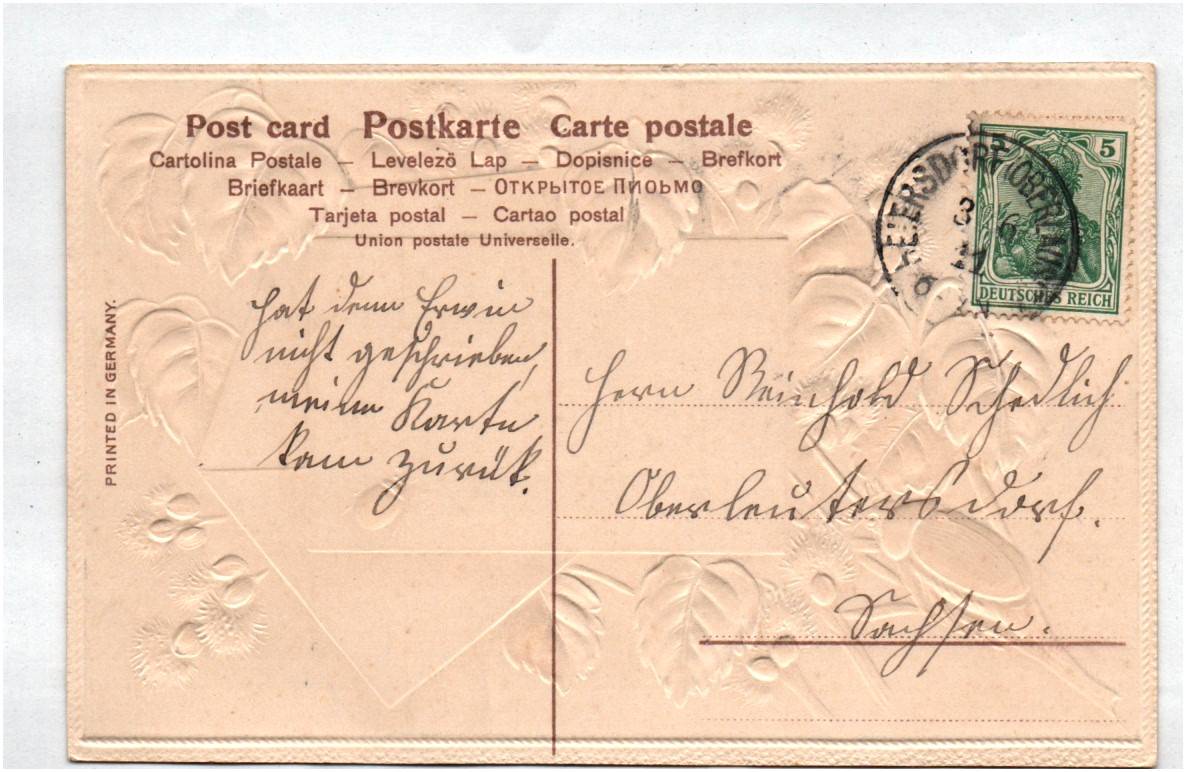 Post card Postkarte Carte postale
Cartolina Postale – Levelezö Lap – Dopisnice – Brefkort
Briefkaart – Brevkort – ОТКРЫТОЕ ПИСЬМО
Tarjeta postal – Cartao postal
Union postale Universelle.
PRINTED IN GERMANY.
5
DEUTSCHES REICH
hat denn Erwin
nicht geschrieben,
meine Karte
kam zurük.
Herrn Reinhold Schedlich
Oberleutersdorf.
Sachsen.